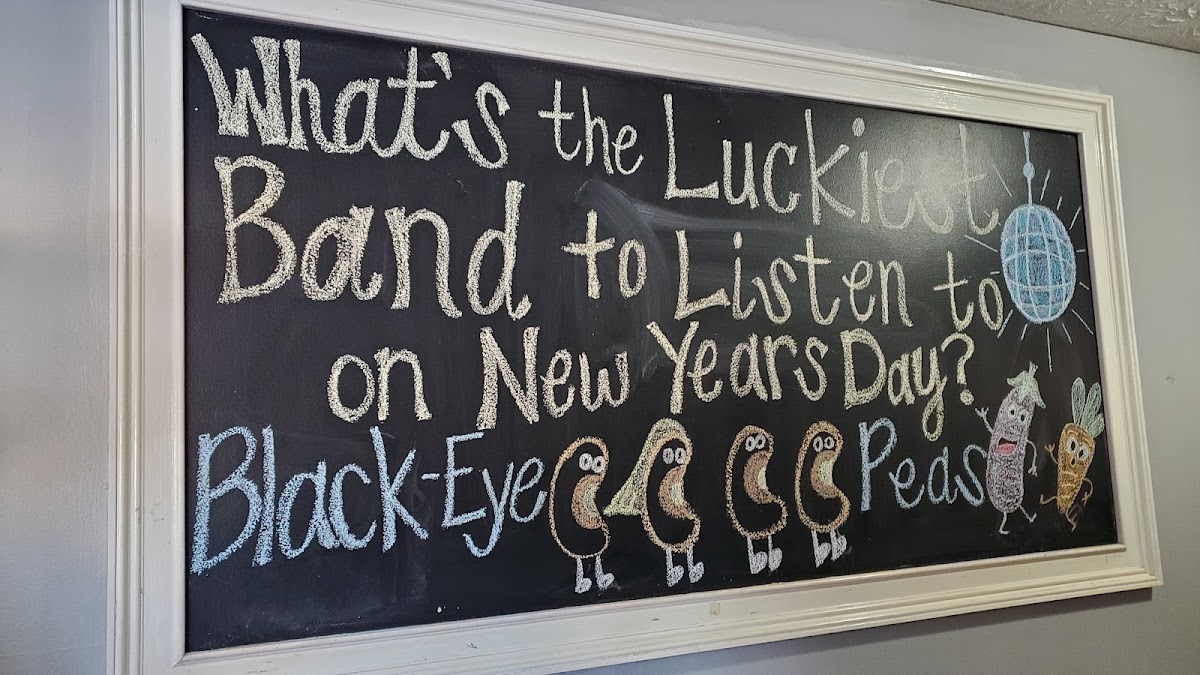 What's the Luckiest
Band to Listen to
on New Years Day?
Black-Eye Peas